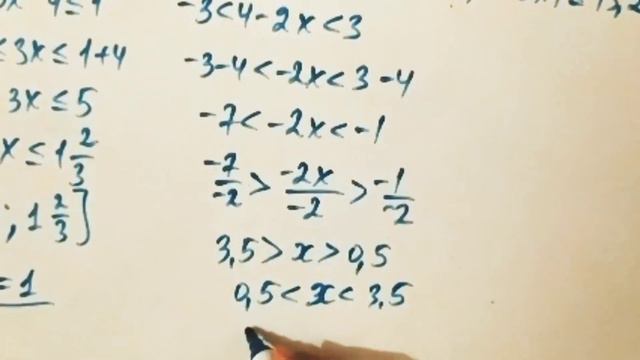 ≤ 3x ≤ 1+4
3x ≤ 5
x ≤ 1 2/3
; 1 2/3]
= 1
-3<4-2x<3
-3-4<-2x<3-4
-7<-2x<-1
-7/-2 > -2x/-2 > -1/-2
3,5>x>0,5
0,5<x<3,5